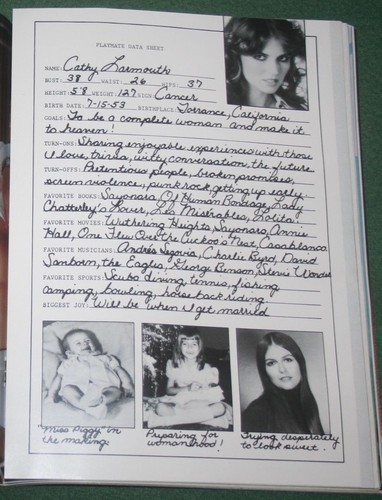 PLAYMATE DATA SHEET
NAME: Cathy Larmouth
BUST: 38 WAIST: 26 HIPS: 37
HEIGHT: 5'8 WEIGHT: 127 SIGN: Cancer
BIRTH DATE: 7-15-53 BIRTHPLACE: Torrance, California
GOALS: To be a complete woman and make it
to heaven!
TURN-ONS: Sharing enjoyable experiences with those
I love, trivia, witty conversation, the future
TURN-OFFS: Pretentious people, broken promises,
screen violence, punk rock, getting up early.
FAVORITE BOOKS: Sayonara, Of Human Bondage, Lady
Chatterly's Lover, Les Misérables, Lolita.
FAVORITE MOVIES: Wuthering Heights, Sayonara, Annie
Hall, One Flew Over the Cuckoo's Nest, Casablanca.
FAVORITE MUSICIANS: Andrés Segovia, Charlie Byrd, David
Sanborn, the Eagles, George Benson, Stevie Wonder
FAVORITE SPORTS: Scuba diving, tennis, fishing
camping, bowling, horseback riding
BIGGEST JOY: Will be when I get married
"Miss Piggy" in
the making.
Preparing for
womanhood!
Trying desperately
to look sweet.